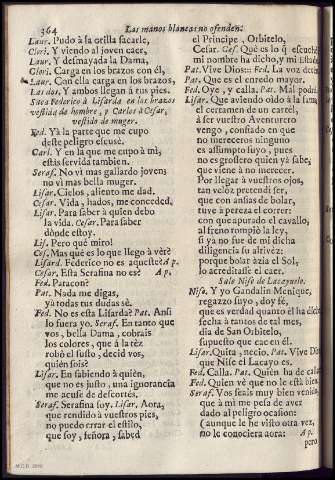 364 Las manos blancas no ofenden.
Laur. Pudo à la orilla sacarle,
Clori. Y viendo al joven caer,
Laur. Y desmayada la Dama,
Clori. Carga en los brazos con él,
Laur. Con ella carga en los brazos,
Las dos. Y ambos llegan à tus pies.
Saca Federico à Lisarda en los brazos
vestida de hombre, y Carlos à Cesar,
vestido de muger.
Fed. Yà la parte que me cupo
deste peligro escusé.
Carl. Y en la que me cupo à mì,
estàs servida tambien.
Seraf. No vì mas gallardo joven;
no vì mas bella muger.
Lisar. Cielos, aliento me dad.
Cesar. Vida, hados, me conceded.
Lisar. Para saber à quien debo
la vida. Cesar. Para saber
dònde estoy.
Lis. Pero què miro!
Ces. Mas què es lo que llego à vèr?
Lisard. Federico no es aqueste? A p.
Cesar. Esta Serafina no es? A p.
Fed. Patacon?
Pat. Nada me digas,
yà todas tus dudas sè.
Fed. No es esta Lisarda? Pat. Ansi
lo fuera yo. Seraf. En tanto que
vos, bella Dama, cobrais
los colores, que à la tèz
robò el susto, decid vos,
quièn sois?
Lisar. En sabiendo à quièn,
que no es justo, una ignorancia
me acuse de descortès.
Seraf. Serafina soy. Lisar. Aora,
que rendido à vuestros pies,
no puedo errar el estilo,
que soy, señora, sabed
el Principe, Orbitelo,
Cesar. Cesar. Què es lo que escuchè?
mi nombre ha dicho, y mi
Pat. Vive Dios:: Fed. La voz
Pat. Que es el enredo mayor.
Fed. Oye, y calla. Pat. Mal podrè.
Lisar. Que aviendo oido à la fama
el certamen de un cartel,
à ser vuestro Aventurero
vengo, confiado en que
no mereceros ninguno
es assumpto suyo, pues
no es grossero quien yà sabe,
que viene à no merecer.
Por llegar à vuestros ojos,
tan veloz pretendì ser,
que con ansias de bolar,
tuve à pereza el correr:
con que apurado el cavallo,
al freno rompiò la ley,
si yà no fue de mi dicha
diligencia su altivèz;
porque bolar àzia el Sol,
lo acreditasse el caer.
Sale Nise de Lacayuelo.
Nise. Y yo Gandalin Menique,
regazzo suyo, doy fé,
que es verdad quanto él ha dicho
fecha à tantos de tal mes,
dia de San Orbitelo,
supuesto que cae en él.
Lisar. Quita, necio. Pat. Vive Dios
que Nise el Lacayo es.
Fed. Calla. Pat. Quièn ha de
Fed. Quien vè que no le està bien.
Seraf. Vos seais muy bien venido,
que à mì me pesa de aver
dado al peligro ocasion:
(aunque le he visto otra vez,
no le conociera aora: A p.
pero